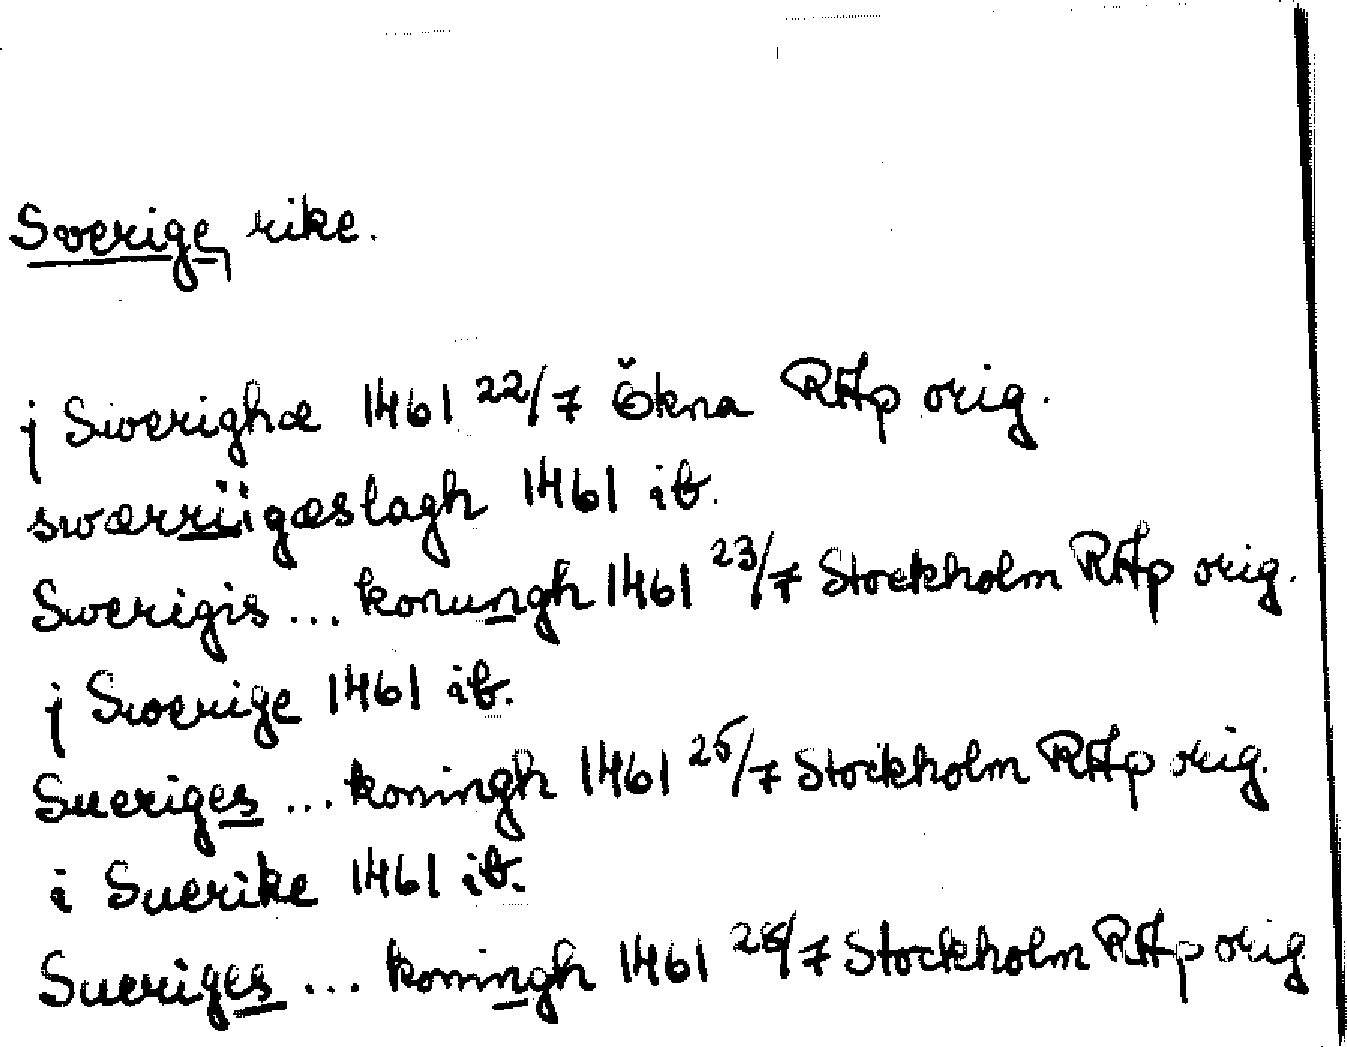 Sverige, rike.
j Swerighæ 1461 22/7 Ökna RAp orig.
swærriigæslagh 1461 ib.
Swerigis ... konungh 1461 23/7 Stockholm RAp orig.
j Swerige 1461 ib.
Sueriges ... koningh 1461 25/7 Stockholm RAp orig.
i Suerike 1461 ib.
Sueriges ... koningh 1461 28/7 Stockholm RAp orig